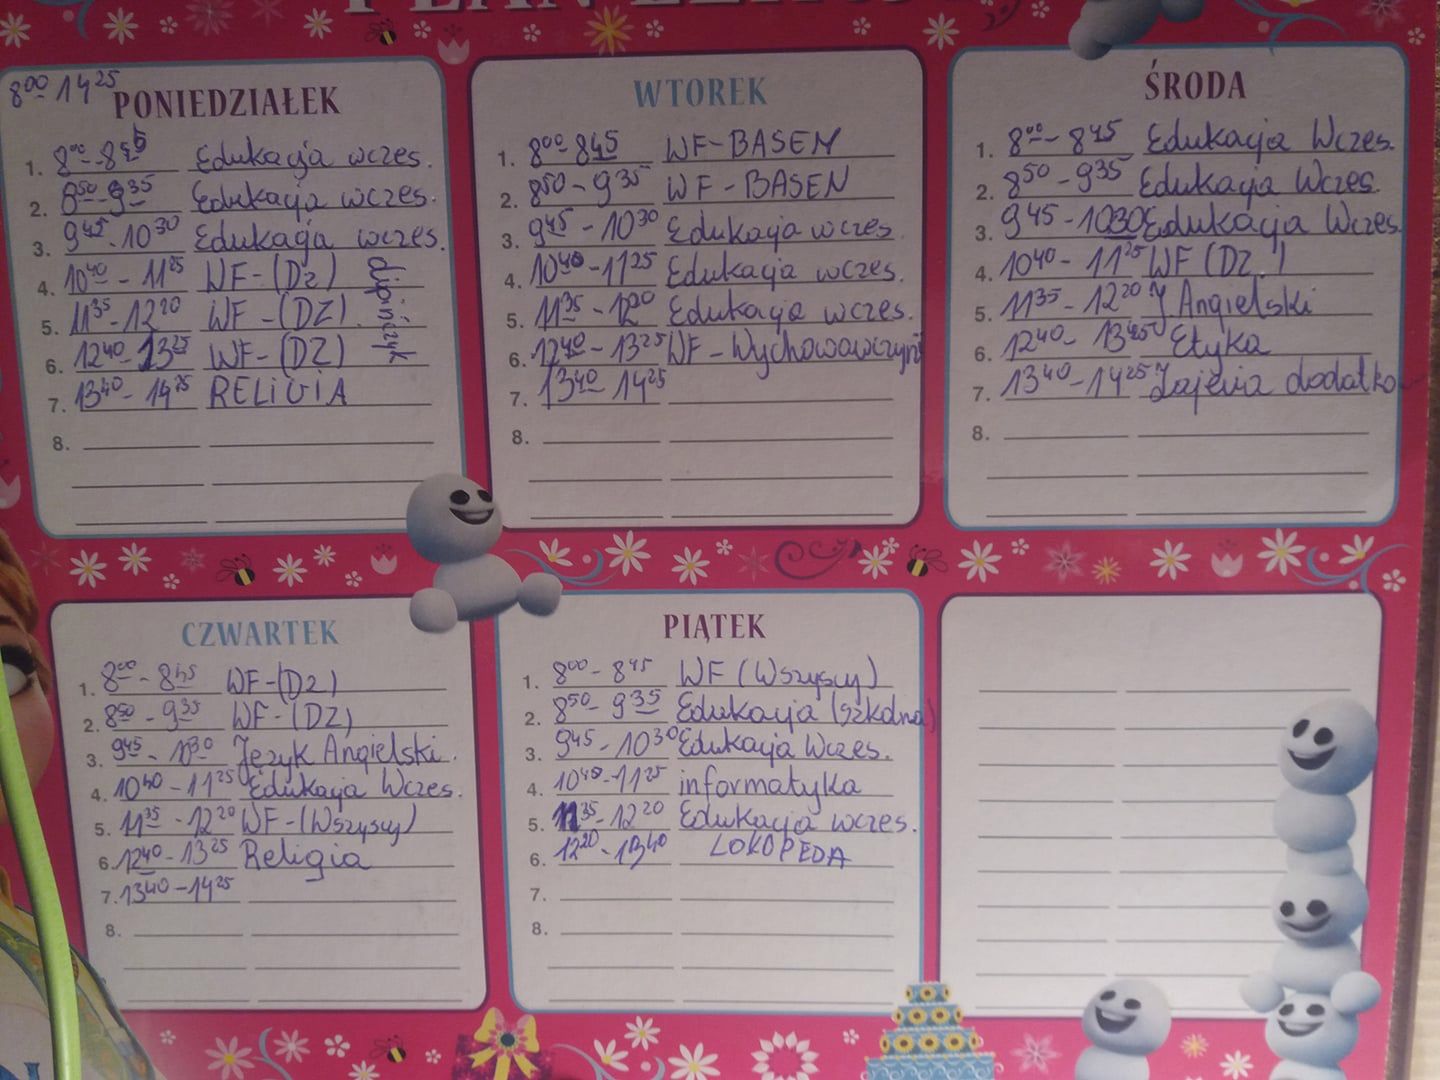 PLAN LEKCJI
8⁰⁰ 14²⁵
PONIEDZIAŁEK
1. 8⁰⁰-8⁴⁵ Edukacja wczes.
2. 8⁵⁰-9³⁵ Edukacja wczes.
3. 9⁴⁵-10³⁰ Edukacja wczes.
4. 10⁴⁰-11²⁵ WF-(Dz)
5. 11³⁵-12²⁰ WF-(DZ)
6. 12⁴⁰-13²⁵ WF-(DZ)
7. 13⁴⁰-14²⁵ RELIGIA
8.
WTOREK
1. 8⁰⁰ 8⁴⁵ WF-BASEN
2. 8⁵⁰-9³⁵ WF-BASEN
3. 9⁴⁵-10³⁰ Edukacja wczes.
4. 10⁴⁰-11²⁵ Edukacja wczes.
5. 11³⁵-12²⁰ Edukacja wczes.
6. 12⁴⁰-13²⁵ WF-Wychowawczyni
7. 13⁴⁰ 14²⁵
8.
ŚRODA
1. 8⁰⁰-8⁴⁵ Edukacja Wczes.
2. 8⁵⁰-9³⁵ Edukacja Wczes.
3. 9⁴⁵-10³⁰ Edukacja Wczes.
4. 10⁴⁰-11²⁵ WF (Dz.)
5. 11³⁵-12²⁰ J Angielski
6. 12⁴⁰- Etyka
7. 13⁴⁰-14²⁵ Zajęcia dodatko
8.
CZWARTEK
1. 8⁰⁰-8⁴⁵ WF-(Dz)
2. 8⁵⁰-9³⁵ WF-(DZ)
3. 9⁴⁵-10³⁰ Język Angielski.
4. 10⁴⁰-11²⁵ Edukacja Wczes.
5. 11³⁵-12²⁰ WF-(Wszyscy)
6. 12⁴⁰-13²⁵ Religia
7. 13⁴⁰-14²⁵
8.
PIĄTEK
1. 8⁰⁰-8⁴⁵ WF (Wszyscy)
2. 8⁵⁰-9³⁵ Edukacja (szkolna)
3. 9⁴⁵-10³⁰ Edukacja Wczes.
4. 10⁴⁰-11²⁵ informatyka
5. 11³⁵-12²⁰ Edukacja wczes.
6. 12²⁰-13⁴⁰ LOKOPEDA
7.
8.